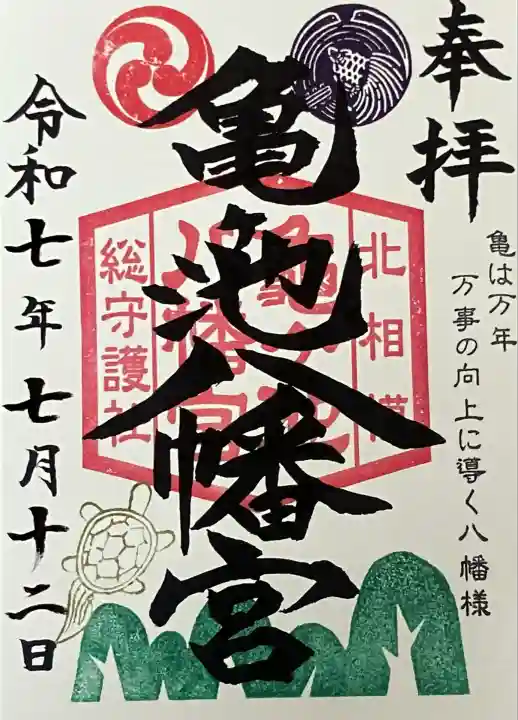 奉拝
亀は万年
万事の向上に導く八幡様
亀池八幡宮
北相模
亀ヶ池
八幡宮
総守護社
令和七年七月十二日